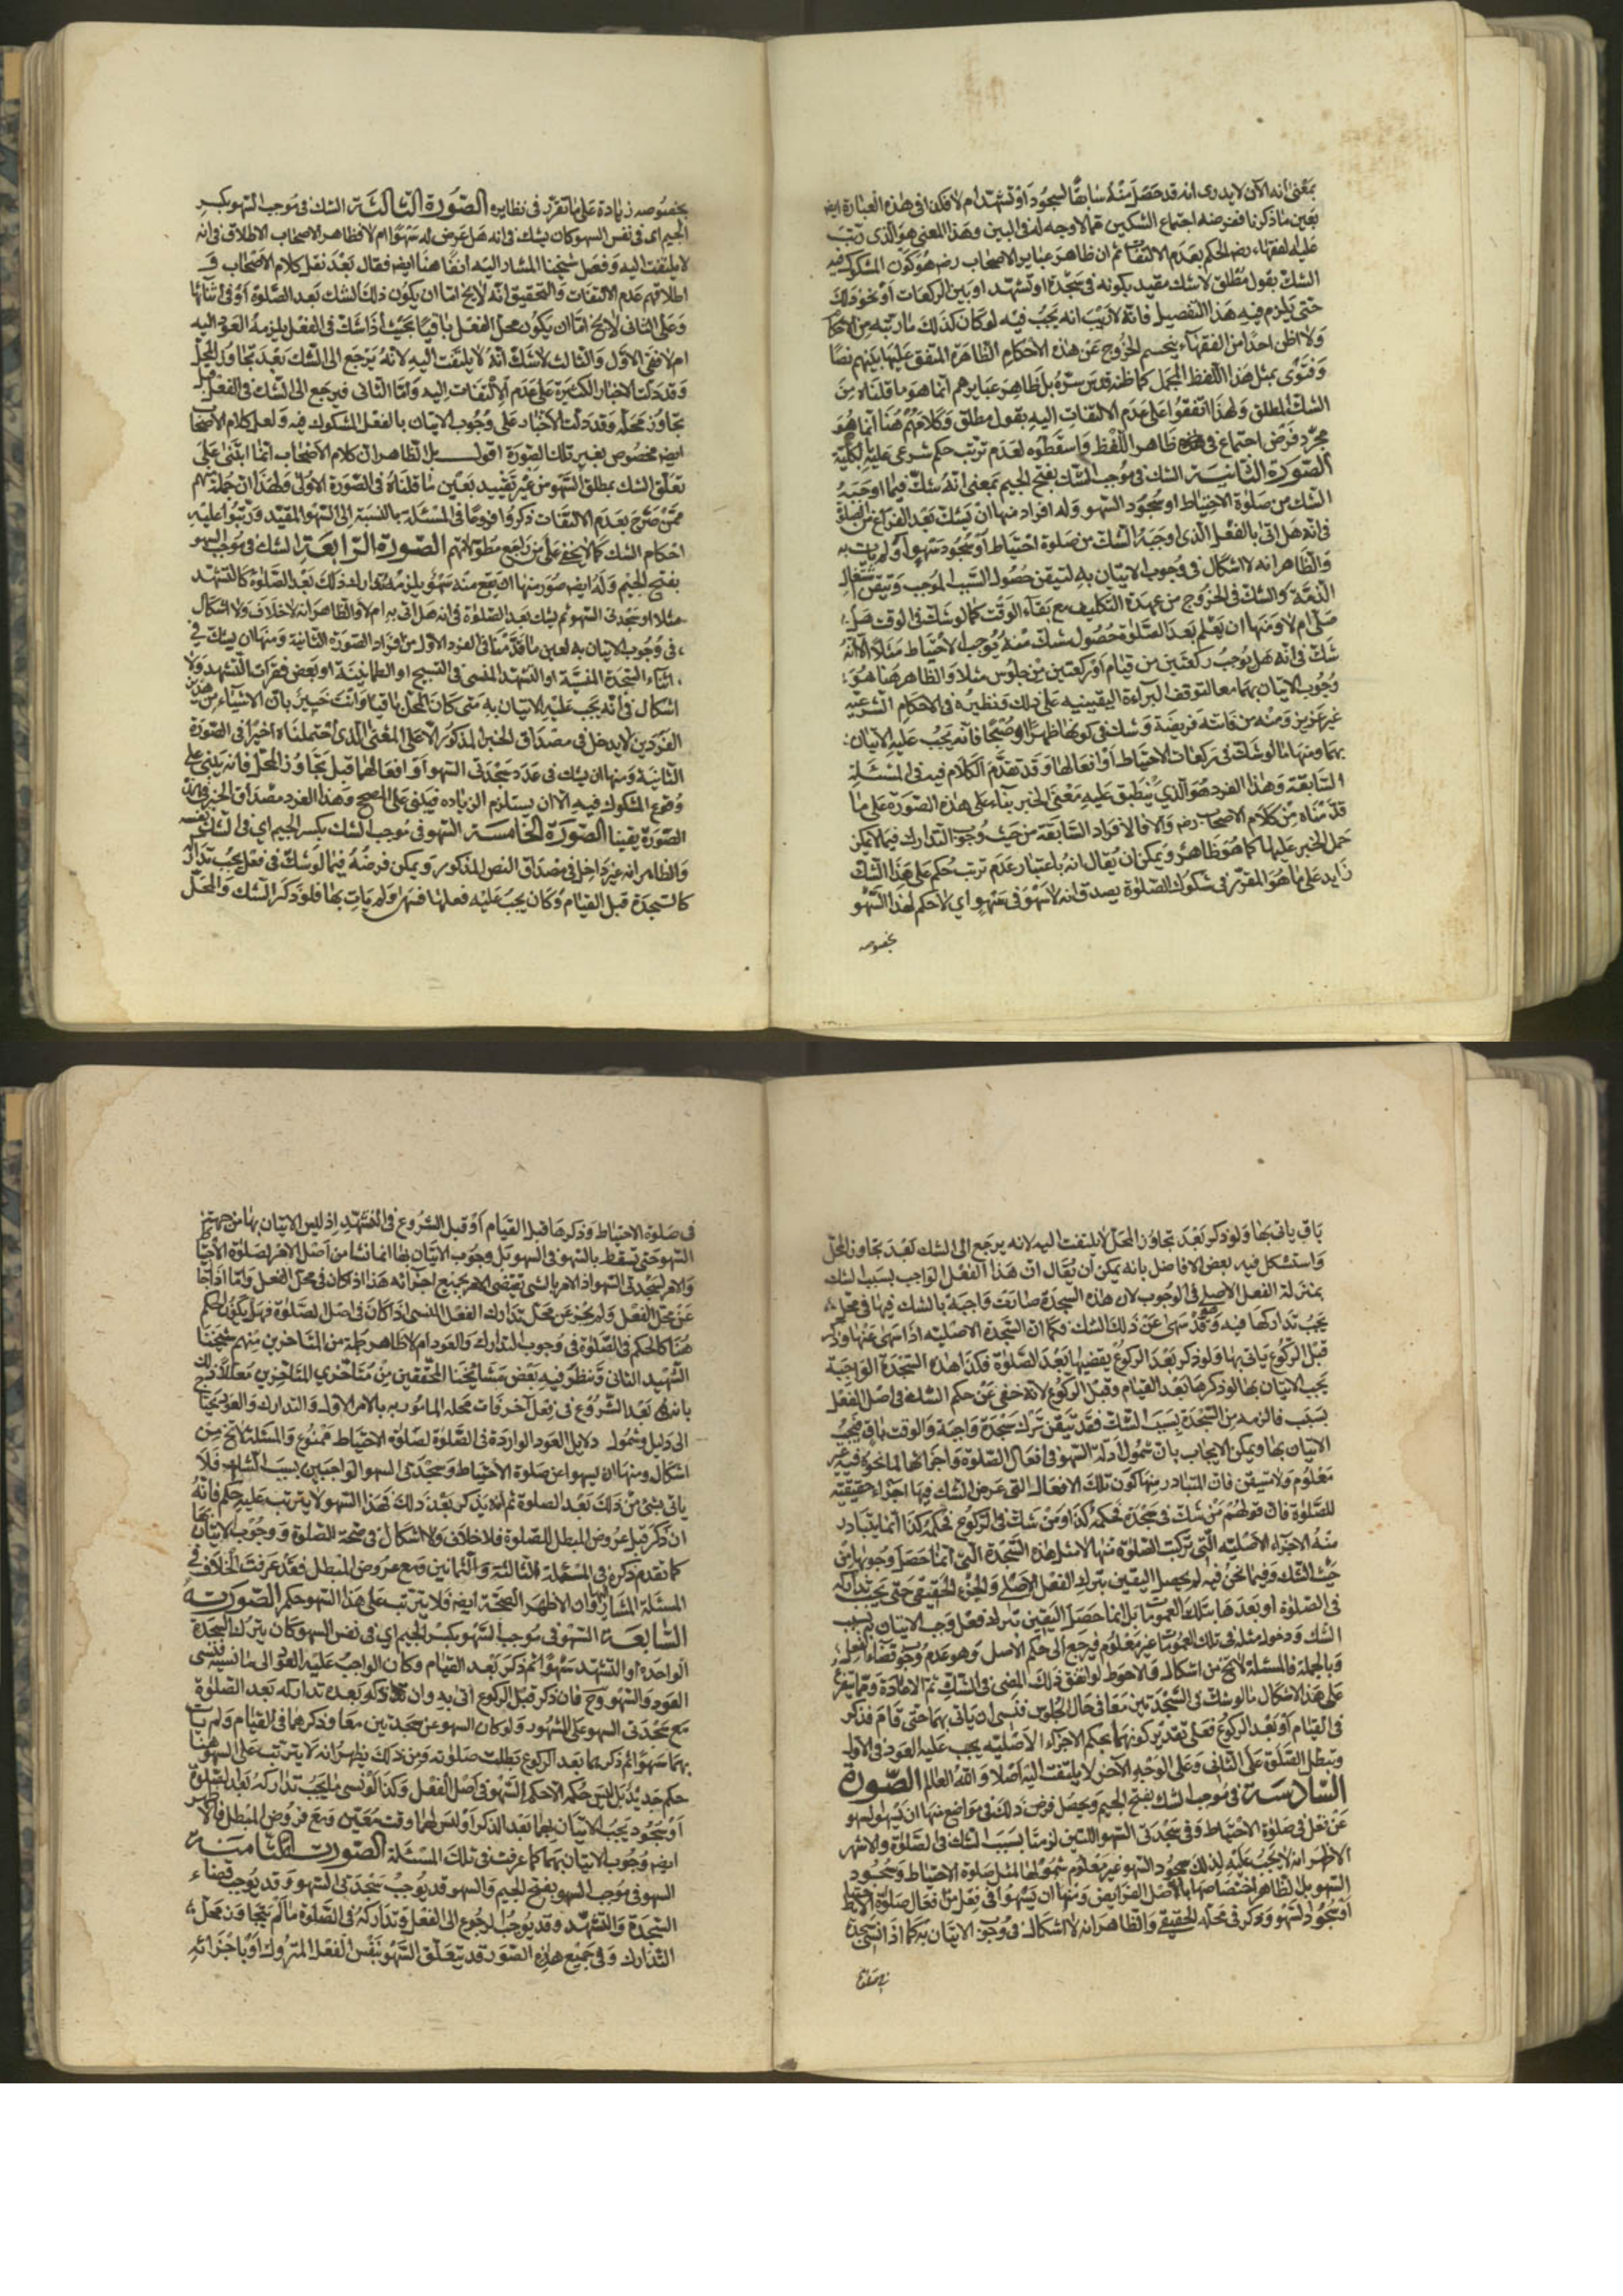 بمعنى أنه الآن لا يدري انه قد حصل منه سابقا السجود او تشهد ام لا فكذا في هذه العبارة ايض
بعين ما ذكرنا ففرضه اجتماع الشكين مما لا وجه له في البين وهذا المعنى هو الذي رتب
عليه لفقهاء رضه الحكم بعدم الالتفات ثم ان ظاهر عباير الاصحاب رضه هو كون المشكوك فيه
الشك بقول مطلق لا شك مقيد بكونه في سجدة او تشهد او بين الركعات او نحو ذلك
حتى يلزم فيه هذا التفصيل فانه لا ريب انه يجب فيه لو كان كذلك ما رتبه من الاحكام
ولا اظن احدا من الفقهاء يتجسم الخروج عن هذه الاحكام الظاهرة المتفق عليها بينهم نصا
وفتوى بمثل هذا اللفظ المجمل كما ظنه قدس سره بل ظاهر عبايرهم انما هو ما قلناه من
الشك المطلق ولهذا اتفقوا على عدم الالتفات اليه بقول مطلق وكلامهم هنا انما هو
مجرد فرض اجتماع في ظاهر اللفظ واسقطوه لعدم ترتب حكم شرعي عليه بالكلية
الصورة الثانية الشك في موجب الشك بفتح الجيم بمعنى انه شك فيما اوجبه
الشك من صلوة الاحتياط او سجود السهو وله افراد منها ان يشك بعد الفراغ من الصلوة
في انه هل اتى بالفعل الذي اوجبه الشك من صلوة احتياط او سجود سهو او لم يات به
والظاهر انه لا اشكال في وجوب الاتيان به لتيقن حصول السبب الموجب وتيقن اشتغال
الذمة والشك في الخروج من عهدة التكليف مع بقاء الوقت كما لو شك في الوقت هل
صلى ام لا ومنها ان يعلم بعد الصلوة حصول شك منه يوجب الاحتياط مثلا الا انه
شك في انه هل يوجب ركعتين من قيام او ركعتين من جلوس مثلا والظاهر هنا هو
وجوب الاتيان بهما معا لتوقف البراءة اليقينية على ذلك ونظيره في الاحكام الشرعية
غير عزيز ومنه من فاتته فريضة وشك في كونها ظهرا او صبحا فانه يجب عليه الاتيان
بهما ومنها ما لو شك في ركعات الاحتياط او افعالها وقد تقدم الكلام فيه في المسئلة
السابقة وهذا الفرد هو الذي ينطبق عليه معنى الخبر بناء على هذه الصورة على ما
قدمناه من كلام الاصحاب رضه والا فالافراد السابقة من حيث وجوب التدارك فيها لا يمكن
حمل الخبر عليها كما هو ظاهر ويمكن ان يقال انه باعتبار عدم ترتب حكم على هذا الشك
زايد على ما هو المقرر في شكوك الصلوة يصدق انه لا سهو في سهو اي لا حكم لهذا السهو
بخصوصه
بخصوصه زيادة على ما تقرر في نظايره الصورة الثالثة الشك في موجب السهو بكسر
الجيم اي في نفس السهو كان يشك في انه هل عرض له سهو ام لا فظاهر الاصحاب الاطلاق في انه
لا يلتفت اليه وفصل شيخنا المشار اليه آنفا هنا ايض فقال بعد نقل كلام الاصحاب و
اطلاقهم عدم الالتفات والتحقيق انه لا يخ اما ان يكون ذلك الشك بعد الصلوة او في اثنائها
وعلى الثاني لا يخ اما ان يكون محل الفعل باقيا بحيث اذا شك في الفعل يلزمه العود اليه
ام لا ففي الاول والثالث لا شك انه لا يلتفت اليه لانه يرجع الى الشك بعد تجاوز المحل
وقد دلت الاخبار الكثيرة على عدم الالتفات اليه واما الثاني فيرجع الى الشك في الفعل قبل
تجاوز محله وقد دلت الاخبار على وجوب الاتيان بالفعل المشكوك فيه ولعل كلام الاصحاب
ايض مخصوص بغير تلك الصورة اقول بل الظاهر ان كلام الاصحاب انما ابتنى على
تعلق الشك بمطلق السهو من غير تقييد بعين ما قلناه في الصورة الاولى ولهذا ان جملة منهم
ممن صرح بعدم الالتفات ذكروا فروعا في المسئلة بالنسبة الى السهو المقيد ورتبوا عليه
احكام الشك كما لا يخفى على من راجع مطولاتهم الصورة الرابعة الشك في موجب السهو
بفتح الجيم وله ايض صور منها ان يقع منه سهو يلزمه تدارك ذلك بعد الصلوة كالتشهد
مثلا او سجدتي السهو ثم يشك بعد الصلوة في انه هل اتى به ام لا والظاهر انه لا خلاف ولا اشكال
في وجوب الاتيان به لعين ما قدمنا في الفرد الاول من افراد الصورة الثانية ومنها ان يشك في
اثناء السجدة المنسية او التشهد المنسي في التسبيح او الطمانينة او بعض فقرات التشهد ولا
اشكال في انه يجب عليه الاتيان به متى كان المحل باقيا وانت خبير بان الاشياء من هذين
الفردين لا يدخل في مصداق الخبر المذكور الا على المعنى الذي احتملناه اخيرا في الصورة
الثانية ومنها ان يشك في عدد سجدتي السهو او افعالهما قبل تجاوز المحل فانه يبني على
وقوع المشكوك فيه الا ان يستلزم الزيادة فيبنى على المصحح وهذا الفرد مصداق الخبر في هذه
الصورة يقينا الصورة الخامسة السهو في موجب الشك بكسر الجيم اي في الشك نفسه
والظاهر انه غير داخل في مصداق النص المذكور ويمكن فرضه فيما لو شك في فعل يجب تداركه
كالسجدة قبل القيام وكان يجب عليه فعلها فسهى ولم يات بها فلو ذكر الشك والمحل
باق ياتي بها ولو ذكر بعد تجاوز المحل لا يلتفت اليه لانه يرجع الى الشك بعد تجاوز المحل
واستشكل فيه بعض الافاضل بانه يمكن أن يقال ان هذا الفعل الواجب بسبب الشك
بمنزلة الفعل الاصلي في الوجوب لان هذه السجدة صارت واجبة بالشك فيها في محل
يجب تداركها فيه وقد سهى عن ذلك الشك وكما ان السجدة الاصلية اذا سهى عنها وذكر
قبل الركوع ياتي بها ولو ذكر بعد الركوع يقضيها بعد الصلوة فكذا هذه السجدة الواجبة
يجب الاتيان بها لو ذكرها بعد القيام وقبل الركوع لانه خفي عن حكم الشك في اصل الفعل
بسبب فالزمه من السجدة بسبب الشك فقد تيقن ترك سجدة واجبة والوقت باق فيجب
الاتيان بها ويمكن الايجاب بان شمول ادلة السهو في افعال الصلوة واجزائها لما نحن فيه غير
معلوم ولا متيقن فان المتبادر منها كون تلك الافعال التي عرض الشك فيها اجزاء حقيقية
للصلوة فان قولهم من شك في سجدة فحكمه كذا ومن شك في الركوع فحكمه كذا انما يتبادر
منه الاجزاء الاصلية التي تركبت الصلوة منها لا مثل هذه السجدة التي انما حصل وجوبها من
حيث الشك وفيما نحن فيه لم يحصل اليقين بترك الفعل الاصلي والجزء الحقيقي حتى يجب تداركه
في الصلوة او بعدها بتلك العمومات بل انما حصل اليقين بترك فعل وجب الاتيان به بسبب
الشك ودخول مثله في تلك العمومات غير معلوم فيرجع الى حكم الاصل وهو عدم وجوب قضاء الفعل
وبالجملة فالمسئلة لا تخ من اشكال فالاحوط لو اتفق ذلك المضي في الشك ثم الاعادة ومما يتفرع
على هذا الاشكال ما لو شك في السجدتين معا في حال الجلوس فنسي ان ياتي بهما حتى قام فذكر
في القيام او بعد الركوع فعلى تقدير كونهما بحكم الاجزاء الاصلية يجب عليه العود في الاول
وتبطل الصلوة على الثاني وعلى الوجه الآخر لا يلتفت اليه اصلا والله العالم الصورة
السادسة في موجب الشك بفتح الجيم ويحصل فرض ذلك في مواضع منها ان يسهو السهو
عن فعل في صلوة الاحتياط وفي سجدتي السهو اللتين لزمتا بسبب الشك في الصلوة والاشهر
الاظهر انه لا يجب عليه لذلك سجود السهو غير معلوم شمولها لمثل صلوة الاحتياط وسجود
السهو بل الظاهر اختصاصها باصل الفرايض ومنها ان يسهو في فعل من افعال صلوة الاحتياط
او سجود السهو وذكر في محله الحقيقي والظاهر انه لا اشكال في وجوب الاتيان به كما اذا نسي سجدة
في صلوة
في صلوة الاحتياط وذكرها قبل القيام او قبل الشروع في التشهد اذ ليس الاتيان بها من جهة
السهو حتى تسقط بالسهو في السهو بل وجوب الاتيان بها انما نشا من اصل الامر بصلوة الاحتياط
والامر بسجدتي السهو اذ الامر بالشي يقتضي الامر بجميع اجزائه هذا اذا كان في محل الفعل واما اذا جاز
عن محل الفعل ولم يجز عن محل تدارك الفعل المنسي اذا كان في اصل الصلوة فهل يكون الحكم
هنا كالحكم في الصلوة في وجوب التدارك والعود ام لا ظاهر جملة من المتاخرين منهم شيخنا
الشهيد الثاني ونظر فيه بعض مشايخنا المحققين من متاخري المتاخرين معللا ذلك
بانه بعد الشروع في فعل آخر فات محله المامور به بالامر الاول والتدارك والعود يحتاج
الى دليل وشمول دلايل العود الواردة في الصلوة لصلوة الاحتياط ممنوع والمسئلة لا تخ من
اشكال ومنها ان يسهو عن صلوة الاحتياط وسجدتي السهو الواجبين بسبب الشك فلا
ياتي بشئ من ذلك بعد الصلوة ثم انه يذكر بعد ذلك فهذا السهو لا يترتب عليه حكم فانه
ان ذكر قبل عروض المبطل للصلوة فلا خلاف ولا اشكال في صحة الصلوة ووجوب الاتيان بها
كما تقدم ذكره في المسئلة الثالثة والثمانين ومع عروض المبطل فقد عرفت الخلاف في
المسئلة المشار اليها وان الاظهر الصحة ايض فلا يترتب على هذا السهو حكم الصورة
السابعة السهو في موجب السهو بكسر الجيم اي في نفس السهو كان يترك السجدة
الواحدة او التشهد سهوا ثم ذكر بعد القيام وكان الواجب عليه العود الى ما نسيه فنسي
العود والسهو وح فان ذكر قبل الركوع اتى به وان ذكر بعده تداركه بعد الصلوة
مع سجدتي السهو على المشهور ولو كان السهو عن سجدتين معا وذكرهما في القيام ولم يات
بهما سهوا ثم ذكرهما بعد الركوع بطلت صلوته ومن ذلك يظهر انه لا يترتب على السهو هنا
حكم جديد بل ليس حكمه الا حكم السهو في اصل الفعل وكذا لو نسي ما يجب تداركه بعد الصلوة
او سجود يجب الاتيان بهما بعد الذكر اذ ليس لهما وقت معين ومع عروض المبطل فالاظهر
ايض وجوب الاتيان بهما كما عرفت في تلك المسئلة الصورة الثامنة
السهو في موجب السهو بفتح الجيم والسهو قد يوجب سجدتي السهو وقد يوجب قضاء
السجدة والتشهد وقد يوجب الرجوع الى الفعل وتداركه في الصلوة ما لم يتجاوز محل
التدارك وفي جميع هذه الصور قد يتعلق السهو بنفس الفعل المتروك او باجزائه